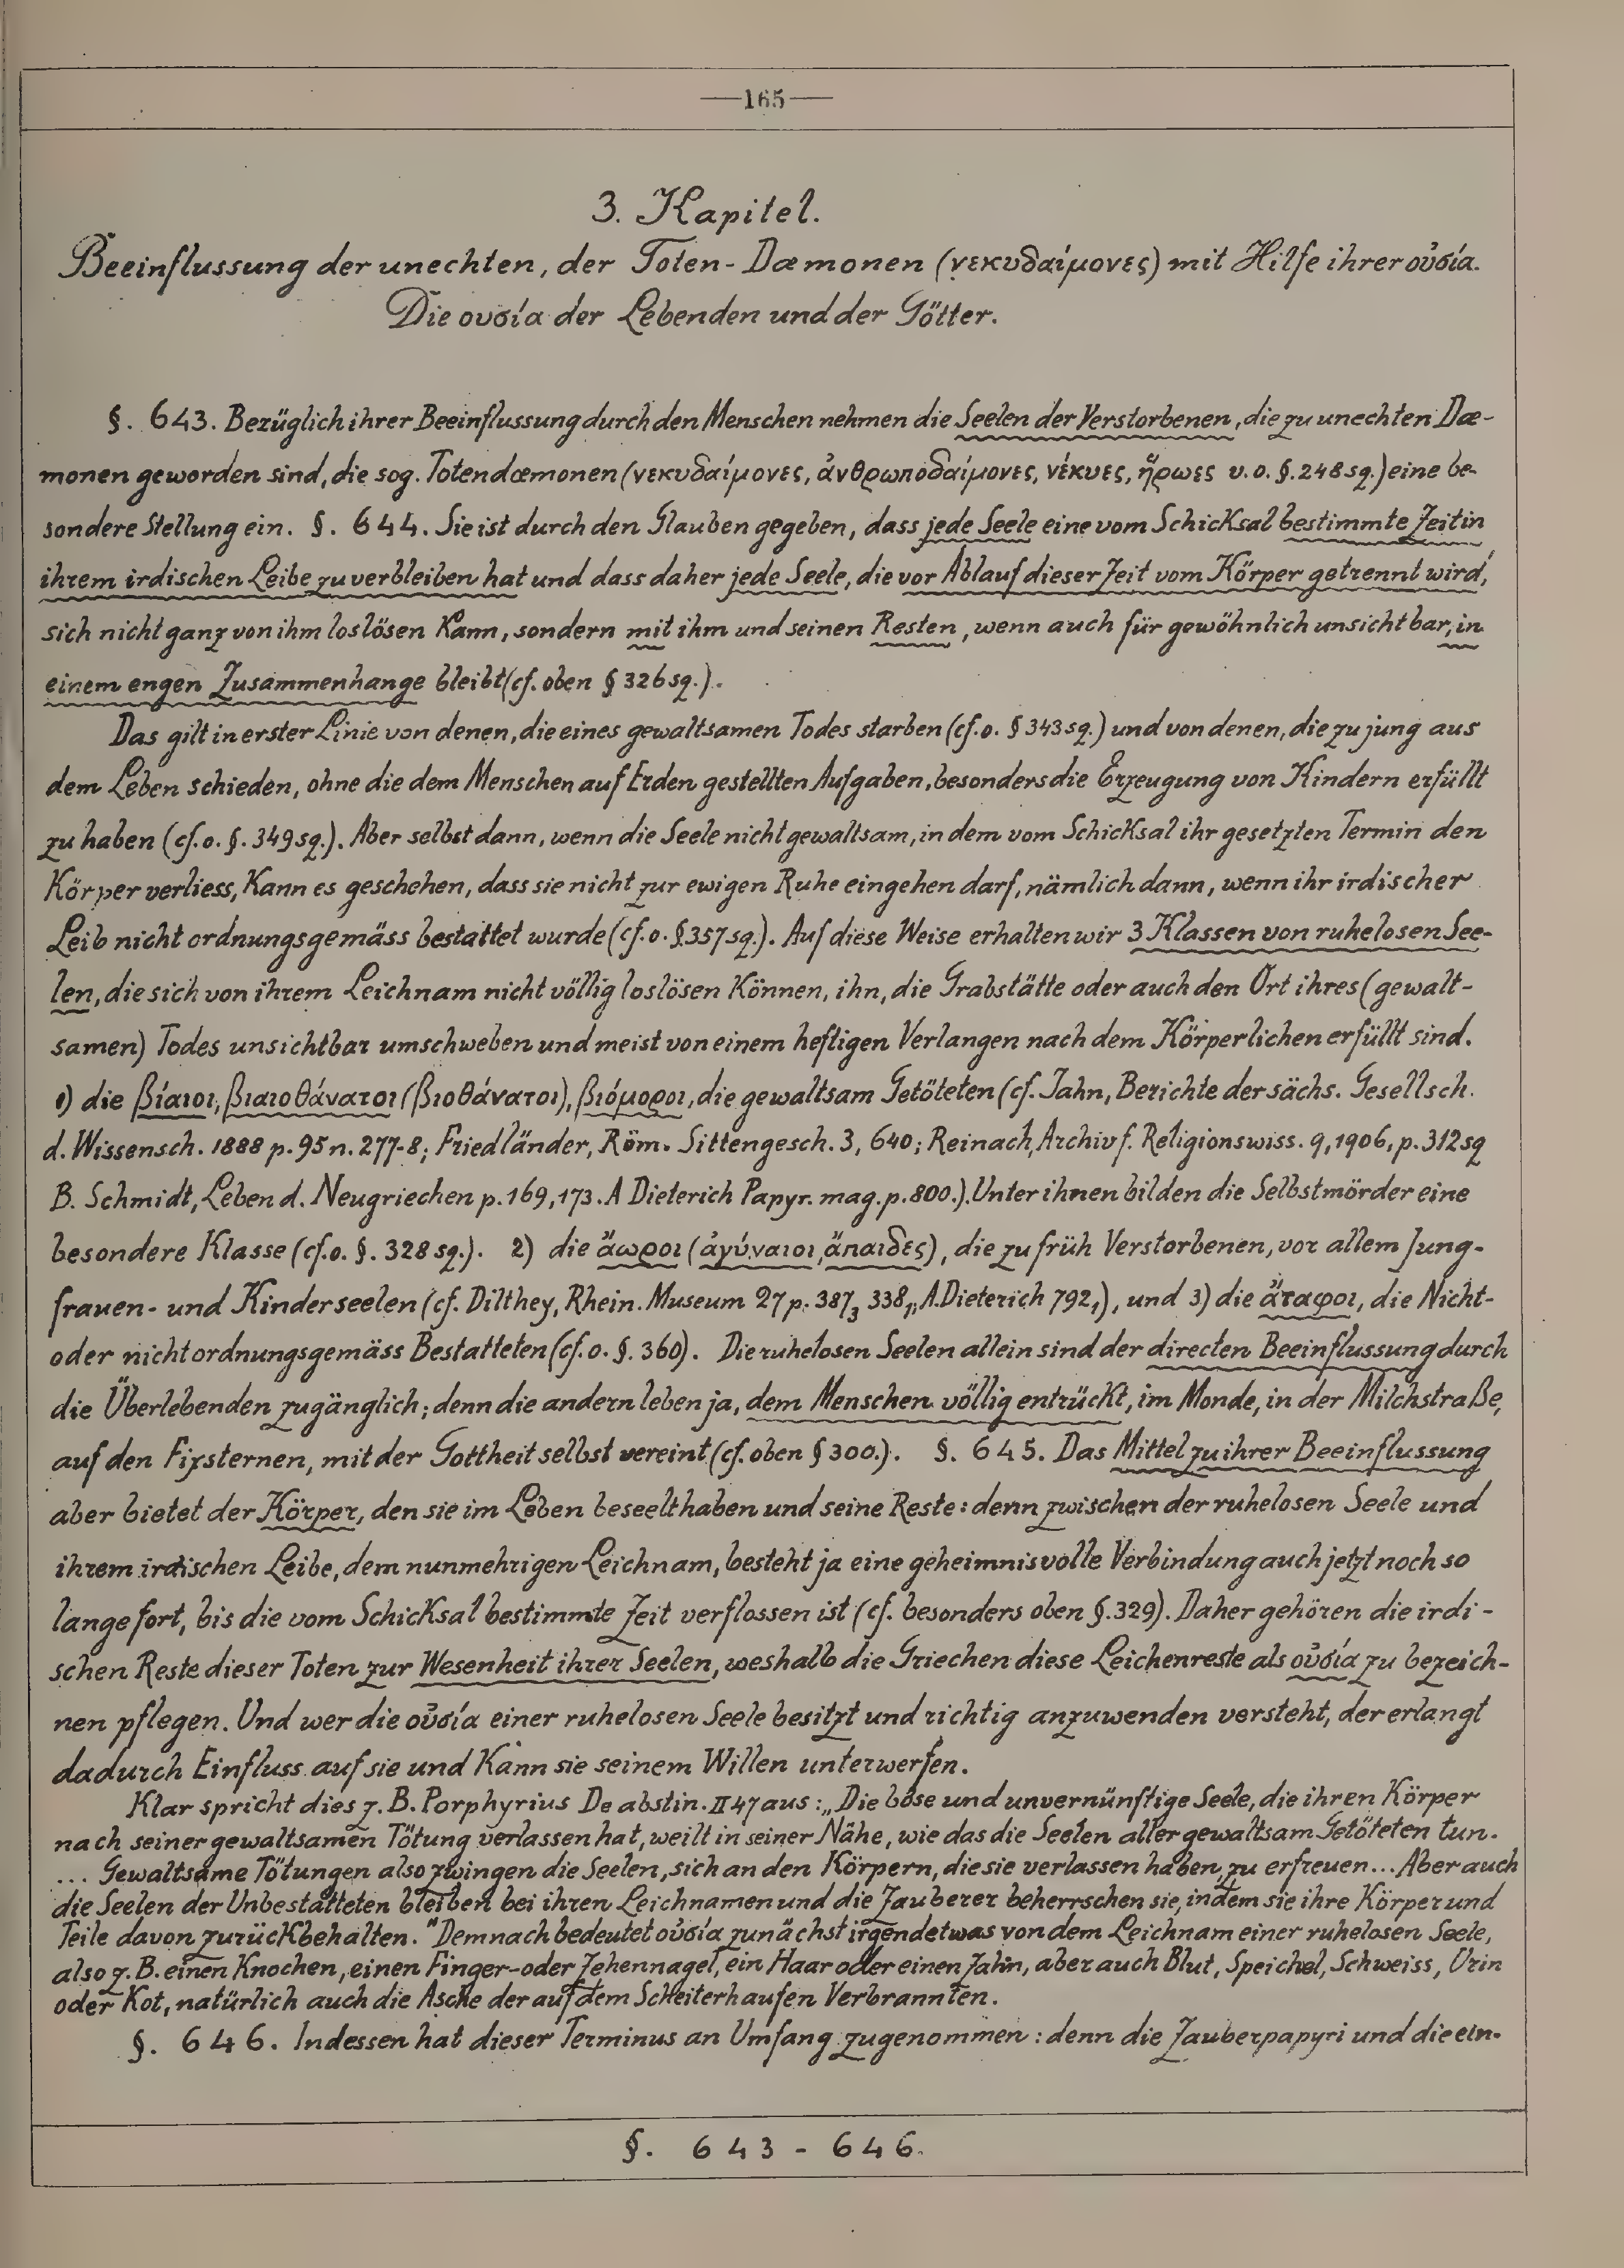 —165—
3. Kapitel.
Beeinflussung der unechten, der Toten-Dæmonen (νεκυδαίμονες) mit Hilfe ihrer οὐσία.
Die ουσία der Lebenden und der Götter.
§. 643. Bezüglich ihrer Beeinflussung durch den Menschen nehmen die Seelen der Verstorbenen, die zu unechten Dæ-
monen geworden sind, die sog. Totendæmonen (νεκυδαίμονες, ἀνθρωποδαίμονες, νέκυες, ἥρωες v. o. §. 248 sq.) eine be-
sondere Stellung ein. §. 644. Sie ist durch den Glauben gegeben, dass jede Seele eine vom Schicksal bestimmte Zeit in
ihrem irdischen Leibe zu verbleiben hat und dass daher jede Seele, die vor Ablauf dieser Zeit vom Körper getrennt wird,
sich nicht ganz von ihm loslösen kann, sondern mit ihm und seinen Resten, wenn auch für gewöhnlich unsichtbar, in
einem engen Zusammenhange bleibt (cf. oben § 326 sq.).
Das gilt in erster Linie von denen, die eines gewaltsamen Todes starben (cf. o. § 343 sq.) und von denen, die zu jung aus
dem Leben schieden, ohne die dem Menschen auf Erden gestellten Aufgaben, besonders die Erzeugung von Kindern erfüllt
zu haben (cf. o. §. 349 sq.). Aber selbst dann, wenn die Seele nicht gewaltsam, in dem vom Schicksal ihr gesetzten Termin den
Körper verliess, kann es geschehen, dass sie nicht zur ewigen Ruhe eingehen darf, nämlich dann, wenn ihr irdischer
Leib nicht ordnungsgemäss bestattet wurde (cf. o. §. 357 sq.). Auf diese Weise erhalten wir 3 Klassen von ruhelosen See-
len, die sich von ihrem Leichnam nicht völlig loslösen können, ihn, die Grabstätte oder auch den Ort ihres (gewalt-
samen) Todes unsichtbar umschweben und meist von einem heftigen Verlangen nach dem Körperlichen erfüllt sind.
1) die βίαιοι, βιαιοθάνατοι (βιοθάνατοι), βιόμοροι, die gewaltsam Getöteten (cf. Jahn, Berichte der sächs. Gesellsch.
d. Wissensch. 1888 p. 95 n. 277-8; Friedländer, Röm. Sittengesch. 3, 640; Reinach, Archiv f. Religionswiss. 9, 1906, p. 312 sq
B. Schmidt, Leben d. Neugriechen p. 169, 173. A Dieterich Papyr. mag. p. 800.). Unter ihnen bilden die Selbstmörder eine
besondere Klasse (cf. o. §. 328 sq.). 2) die ἄωροι (ἀγύναιοι, ἄπαιδες), die zu früh Verstorbenen, vor allem Jung-
frauen- und Kinderseelen (cf. Dilthey, Rhein. Museum 27 p. 387₃ 338₁, A. Dieterich 792₁), und 3) die ἄταφοι, die Nicht-
oder nicht ordnungsgemäss Bestatteten (cf. o. §. 360). Die ruhelosen Seelen allein sind der directen Beeinflussung durch
die Überlebenden zugänglich; denn die andern leben ja, dem Menschen völlig entrückt, im Monde, in der Milchstraße,
auf den Fixsternen, mit der Gottheit selbst vereint (cf. oben § 300.). §. 645. Das Mittel zu ihrer Beeinflussung
aber bietet der Körper, den sie im Leben beseelt haben und seine Reste: denn zwischen der ruhelosen Seele und
ihrem irdischen Leibe, dem nunmehrigen Leichnam, besteht ja eine geheimnisvolle Verbindung auch jetzt noch so
lange fort, bis die vom Schicksal bestimmte Zeit verflossen ist (cf. besonders oben §. 329). Daher gehören die irdi-
schen Reste dieser Toten zur Wesenheit ihrer Seelen, weshalb die Griechen diese Leichenreste als οὐσία zu bezeich-
nen pflegen. Und wer die οὐσία einer ruhelosen Seele besitzt und richtig anzuwenden versteht, der erlangt
dadurch Einfluss auf sie und kann sie seinem Willen unterwerfen.
Klar spricht dies z. B. Porphyrius De abstin. II 47 aus: „Die böse und unvernünftige Seele, die ihren Körper
nach seiner gewaltsamen Tötung verlassen hat, weilt in seiner Nähe, wie das die Seelen aller gewaltsam Getöteten tun.
... Gewaltsame Tötungen also zwingen die Seelen, sich an den Körpern, die sie verlassen haben, zu erfreuen... Aber auch
die Seelen der Unbestatteten bleiben bei ihren Leichnamen und die Zauberer beherrschen sie, indem sie ihre Körper und
Teile davon zurückbehalten." Demnach bedeutet οὐσία zunächst irgendetwas von dem Leichnam einer ruhelosen Seele,
also z. B. einen Knochen, einen Finger- oder Zehennagel, ein Haar oder einen Zahn, aber auch Blut, Speichel, Schweiss, Urin
oder Kot, natürlich auch die Asche der auf dem Scheiterhaufen Verbrannten.
§. 646. Indessen hat dieser Terminus an Umfang zugenommen: denn die Zauberpapyri und die ein-
§. 643 - 646.